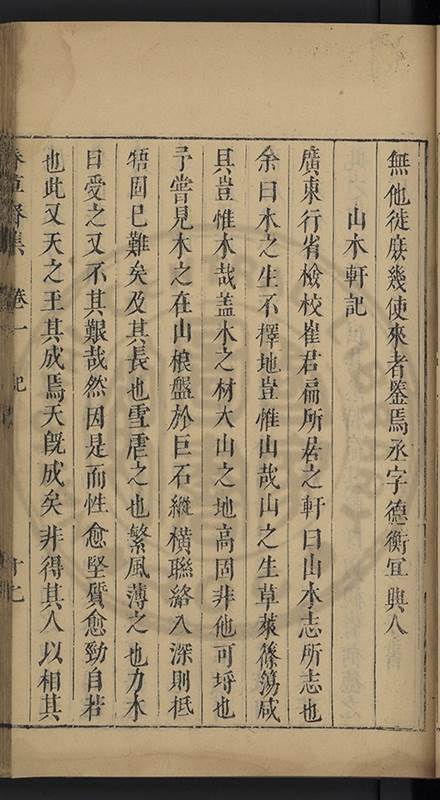 無他徙庶幾使來者鑒焉丞字德衡宜興人
山木軒記
廣東行省檢校崔君扁所居之軒曰山木志所志也
余曰木之生不擇地豈惟山哉山之生草萊篠簜咸
具豈惟木哉蓋木之材大山之地高固非他可埒也
予嘗見木之在山根盤於巨石縱橫聯絡入深則柢
牾固已難矣及其長也雪虐之也繁風薄之也力木
日愛之又不其艱哉然因是而性愈堅質愈勁自若
也此又天之玉其成焉天既成矣非得其人以相其
春草齋集 卷一 記 十七